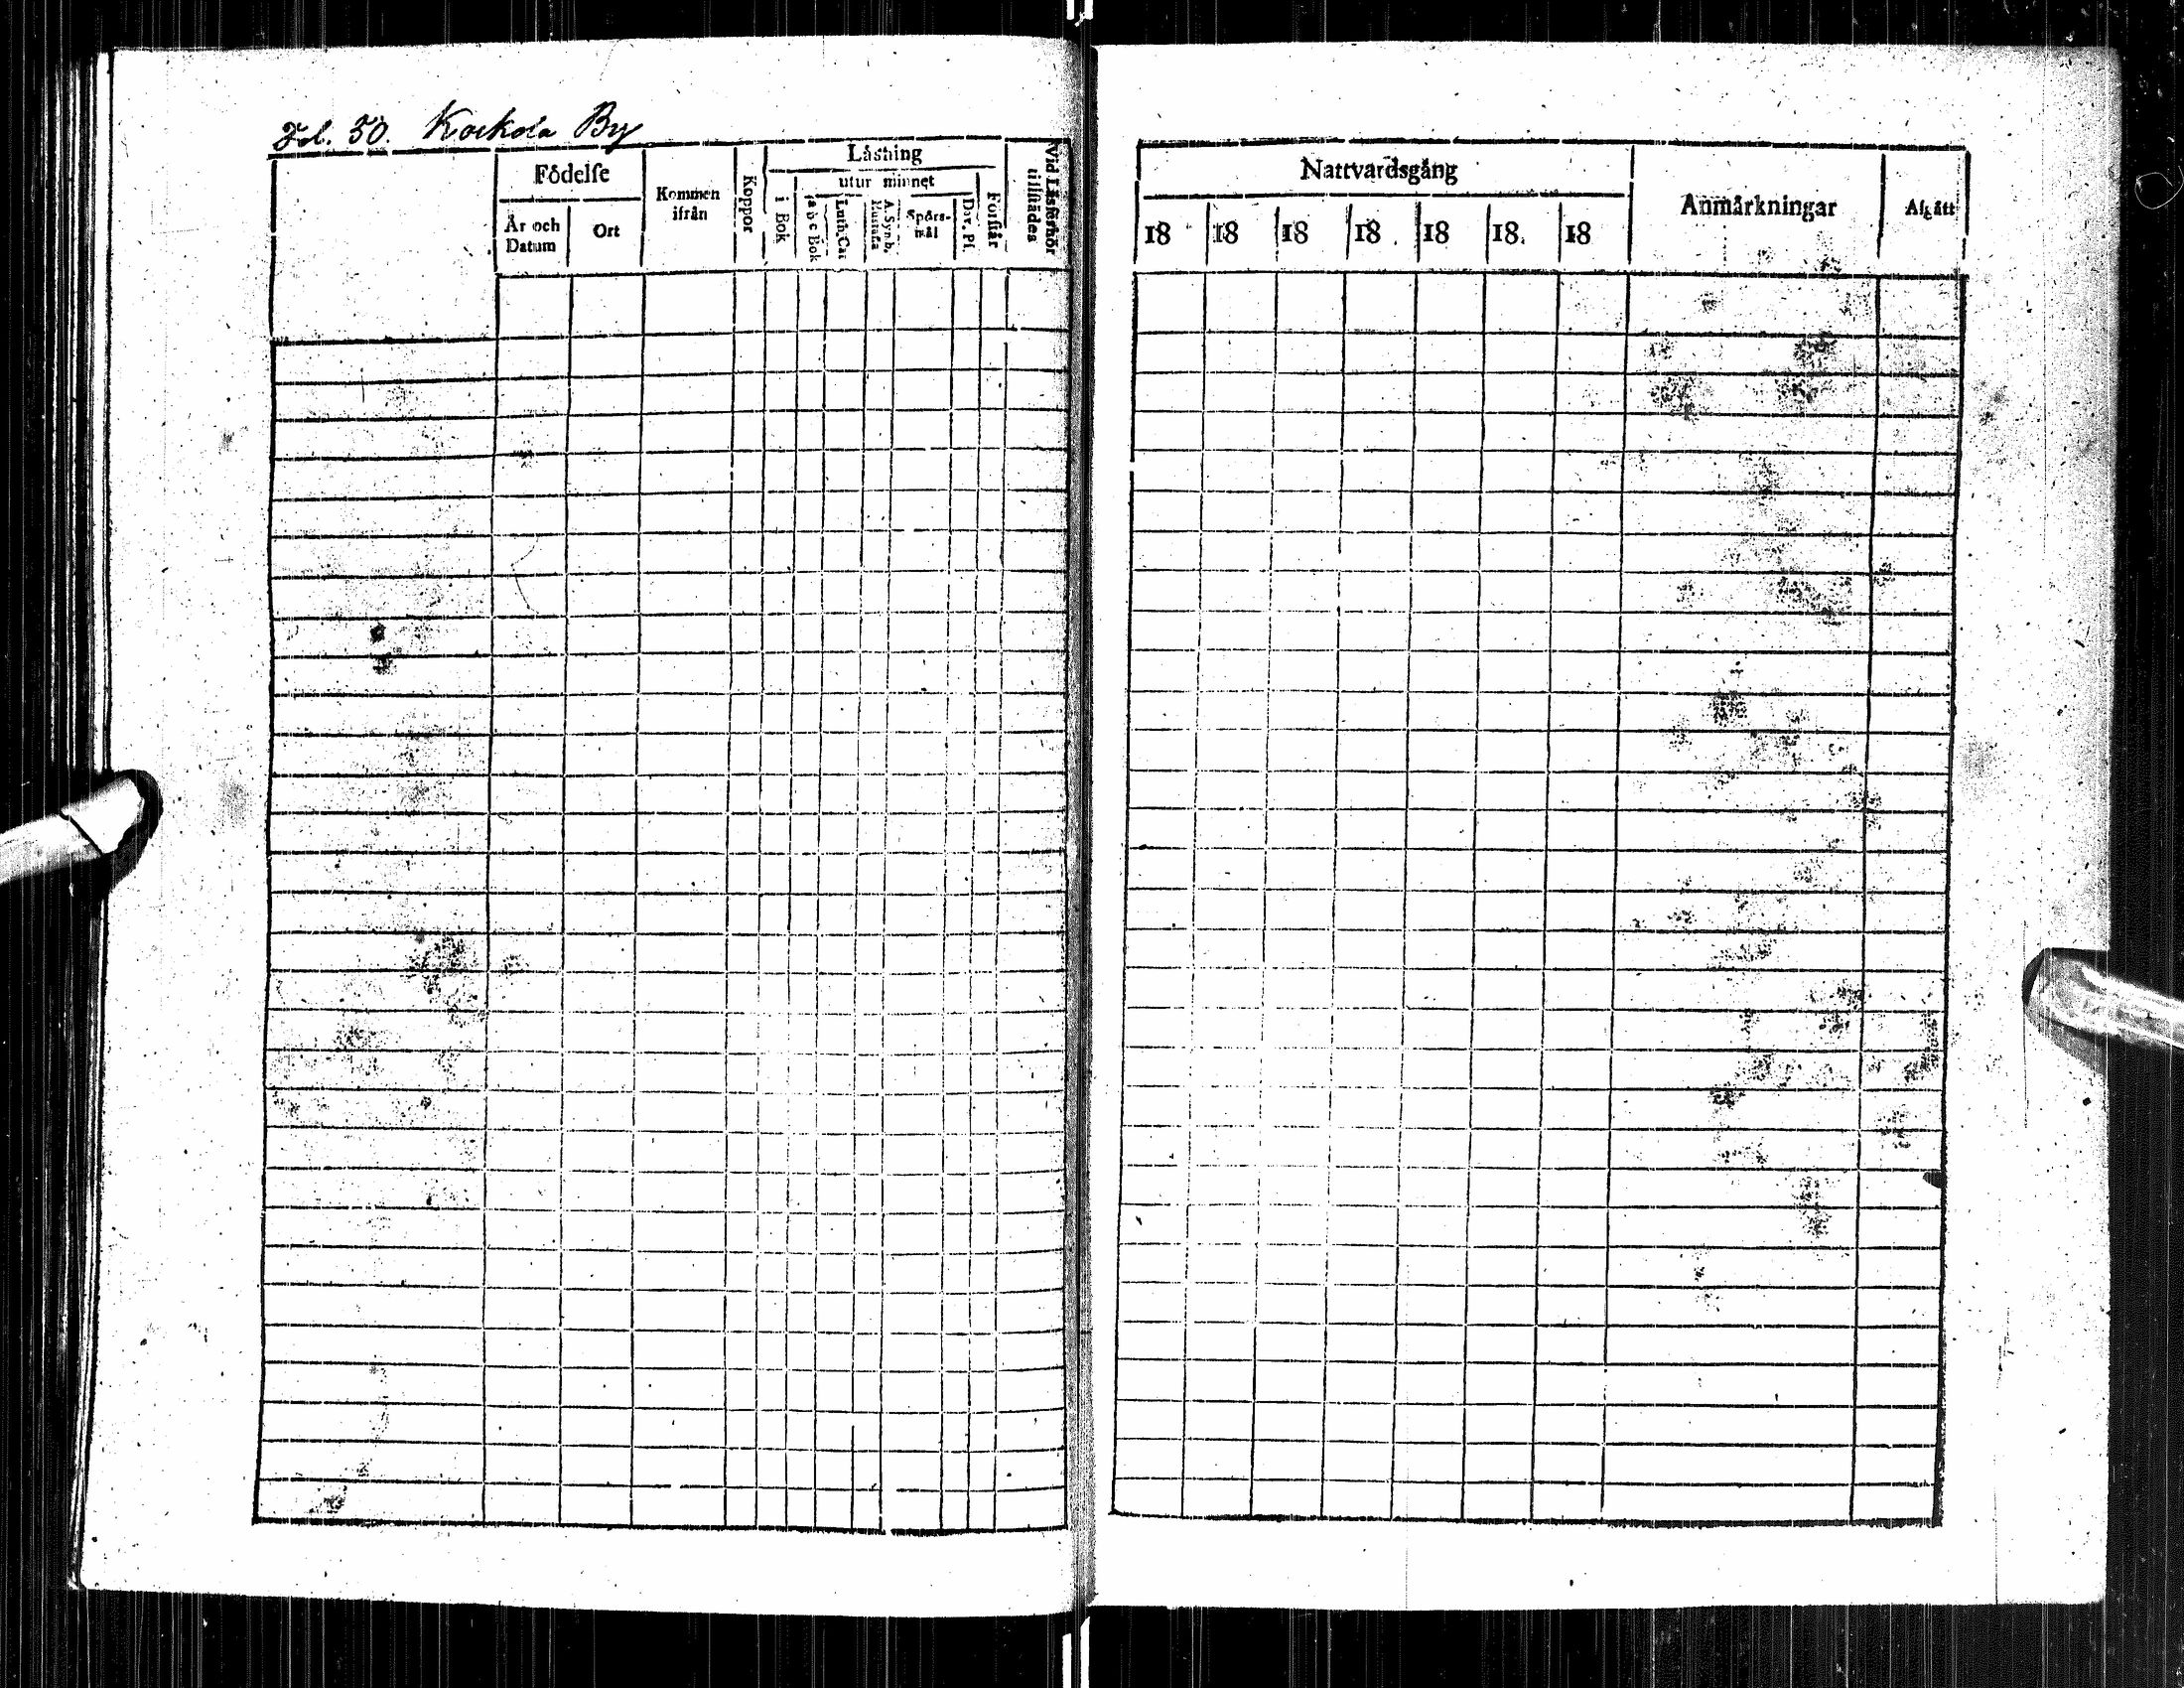 Fol. 50. Korkola By
Födelse
År och Datum
Ort
Kommen ifrån
Koppor
Läsning
i Bok
utur minnet
a b c Bok
Luth. Cat
A. Symb. Hustafla
Spörsmål
Dav. Ps
Förstår
Vid Läsförhör tillstädes
Nattvardsgång
18 18 18 18 18 18 18
Anmärkningar
Afgått